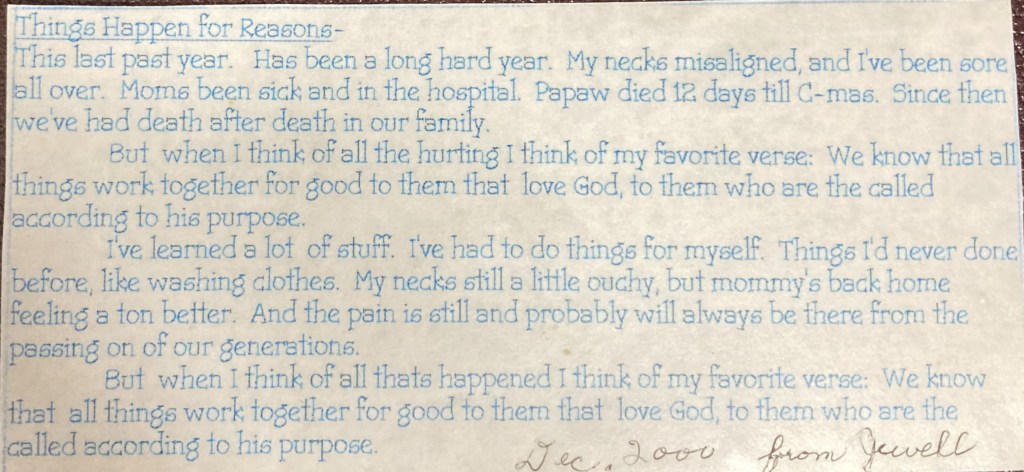 Things Happen for Reasons-
This last past year. Has been a long hard year. My necks misaligned, and I've been sore
all over. Moms been sick and in the hospital. Papaw died 12 days till C-mas. Since then
we've had death after death in our family.
But when I think of all the hurting I think of my favorite verse: We know that all
things work together for good to them that love God, to them who are the called
according to his purpose.
I've learned a lot of stuff. I've had to do things for myself. Things I'd never done
before, like washing clothes. My necks still a little ouchy, but mommy's back home
feeling a ton better. And the pain is still and probably will always be there from the
passing on of our generations.
But when I think of all thats happened I think of my favorite verse: We know
that all things work together for good to them that love God, to them who are the
called according to his purpose.
Dec. 2000 from Jewell